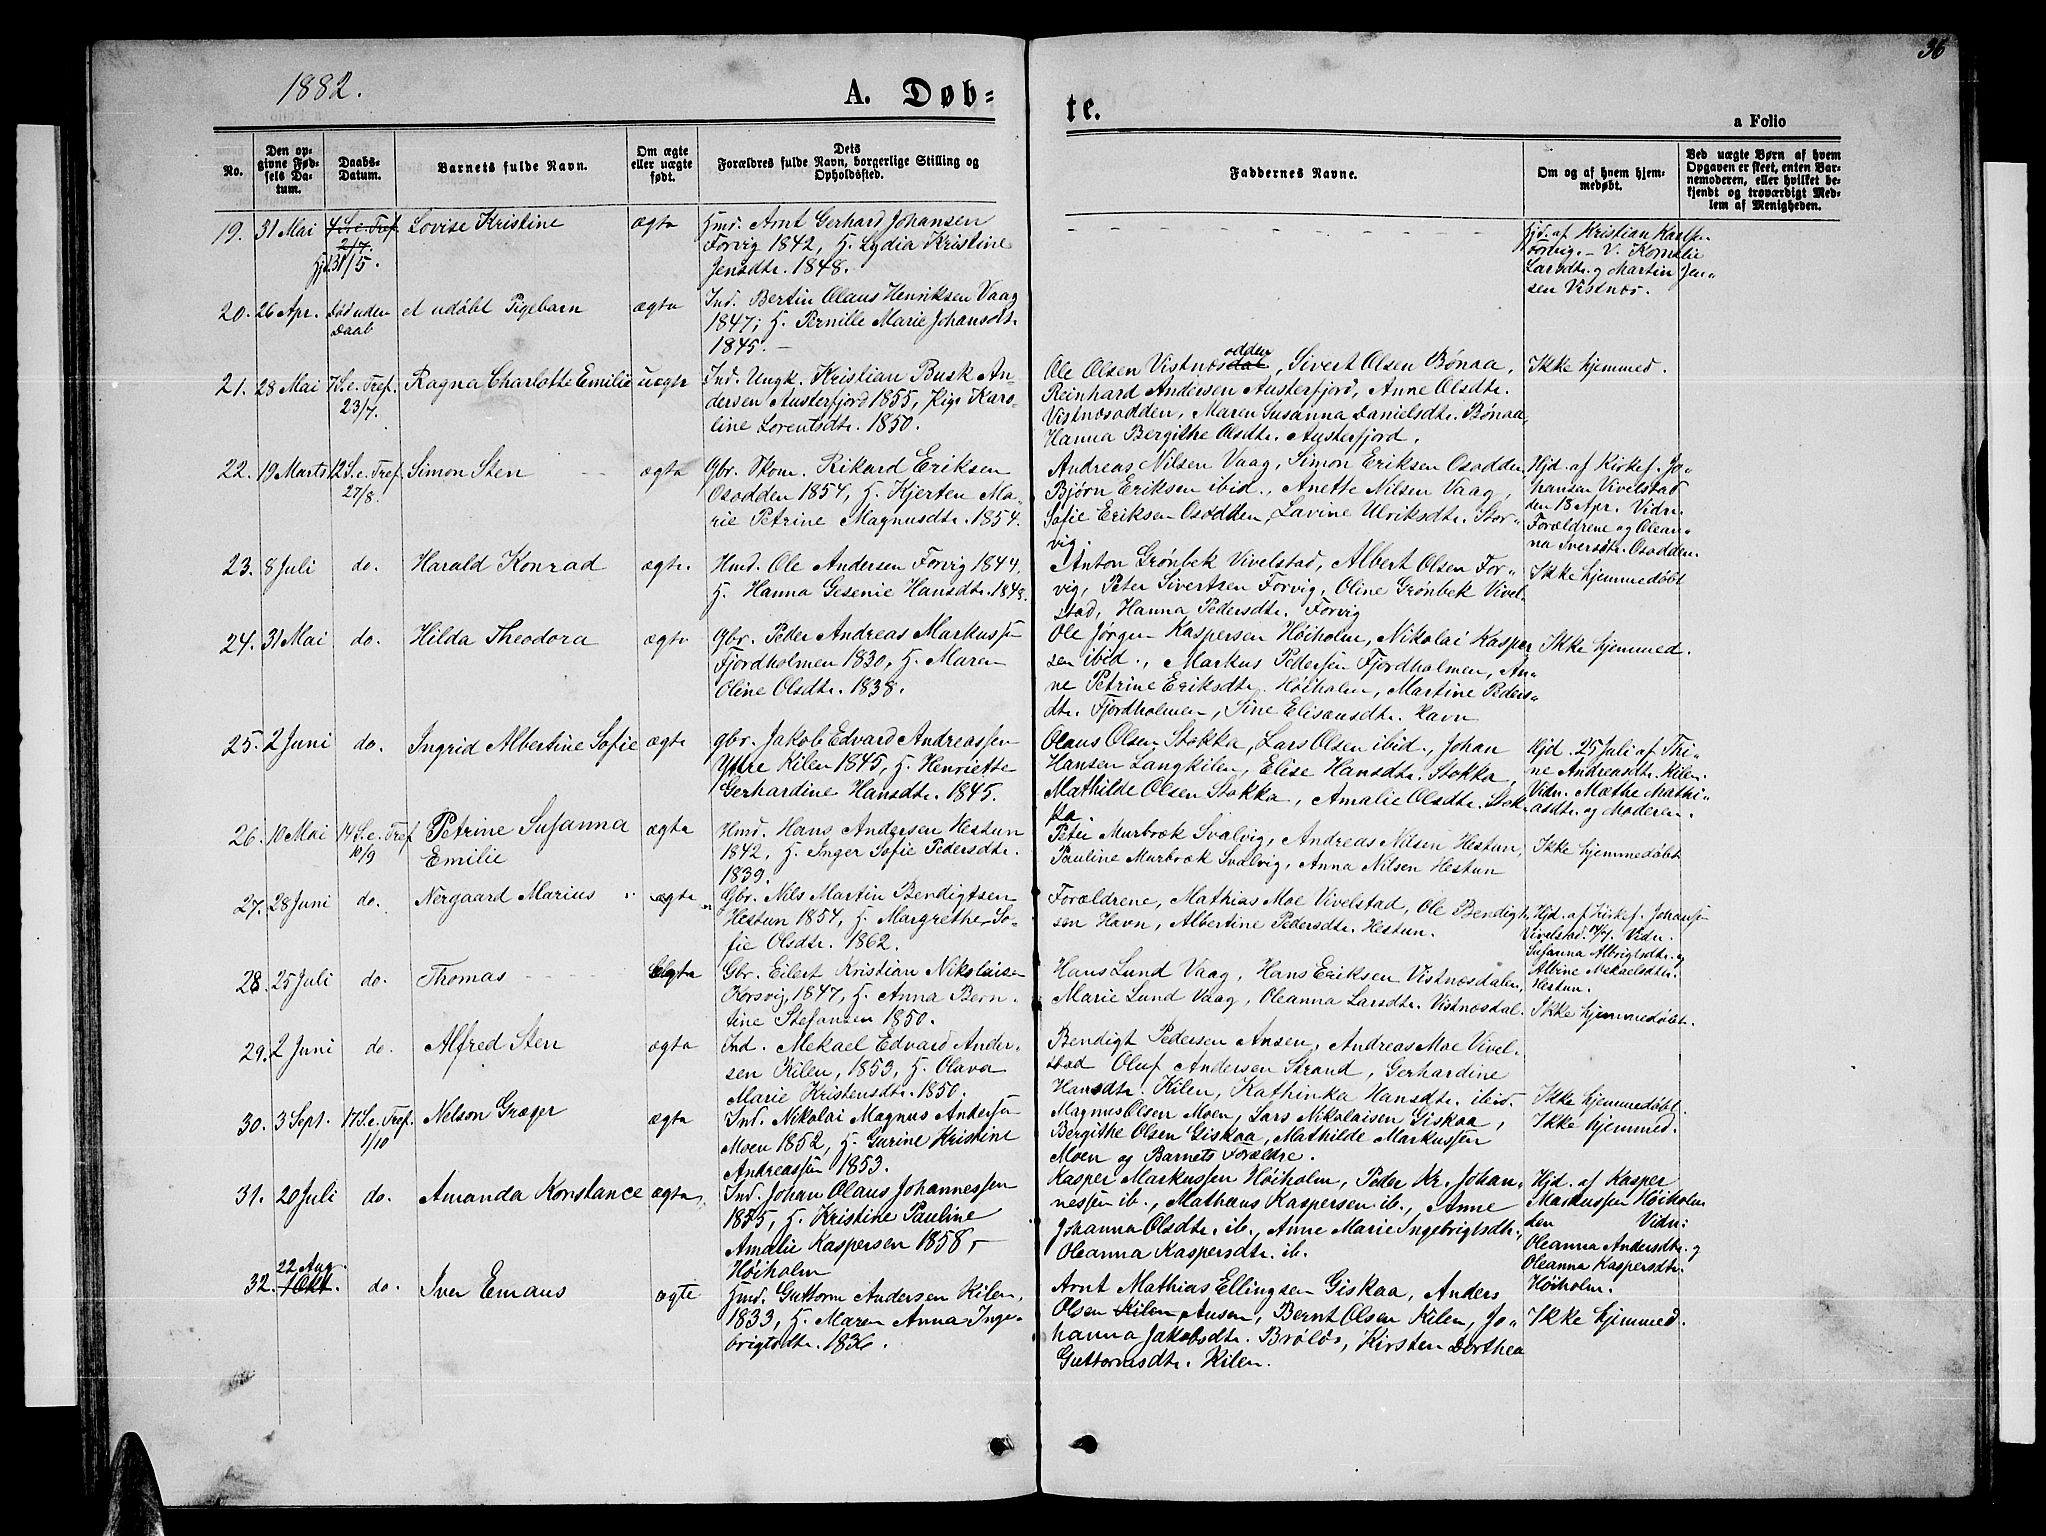 36
1882.
A. Døb=
te.
a Folio
No.
Den op-
givne Fød-
sels Da-
tum.
Daabs-
Datum.
Barnets fulde Navn.
Om ægte
eller uægte
født.
Dets
Forældres fulde Navn, borgerlige Stilling og
Opholdsted.
Faddernes Navne.
Om og af hvem hjem-
medøbt.
Ved uægte Børn af hvem
Opgaven er skeet, enten Bar-
nemoderen, eller hvilket be-
kjendt og troværdigt Med-
lem af Menigheden.
19. 31 Mai
4 S. e. Tref.
2/7.
Hjd. 31/5.
Lovise Kristine
ægte
Hmd. Arnt Gerhard Johansen
Forvig 1842, H. Lydia Kristine
Jensdtr. 1848.
Hjd. af Kristian Karlsen
Forvig. - V. Kornelie
Larsdtr. og Martin Jen-
sen Vistnes.
20. 26 Apr.
død uden
Daab
et udøbt Pigebarn
ægte
Ind. Bertin Olaus Henriksen Vaag
1847; H. Pernille Marie Johansdtr.
1845. -
21. 28 Mai
7 S. e. Tref.
23/7.
Ragna Charlotte Emilie
uægte
Ind. Ungk. Kristian Busk An-
dersen Austerfjord 1855, Pige Karo-
line Lorentsdtr. 1850.
Ole Olsen Vistnesdal odden, Sivert Olsen Bønaa,
Reinhard Andersen Austerfjord, Anne Olsdtr.
Vistnesodden, Maren Susanna Danielsdtr. Bønaa
Hanna Bergithe Olsdtr. Austerfjord.
Ikke hjemmed.
22. 19 Marts
12 S. e. Tref.
27/8.
Simon Sten
ægte
Gbr. Skom. Rikard Eriksen
Osodden 1854, H. Kjersten Ma-
rie Petrine Magnusdtr. 1854.
Andreas Nilsen Vaag, Simon Eriksen Osodden,
Bjørn Eriksen ibid., Anette Nilsen Vaag,
Sofie Eriksen Osodden, Lavine Ulriksdtr. Stor-
vig.
Hjd. af Kirkes. Jo-
hansen Vivelstad
den 18 Apr. Vidn.
Forældrene og Olean-
na Iversdtr. Osodden.
23. 8 Juli
do.
Harald Konrad
ægte.
Hmd. Ole Andersen Forvig 1844,
H. Hanna Gesenie Hansdtr. 1848.
Anton Grønbek Vivelstad, Albert Olsen For-
vig, Peter Sivertsen Forvig, Oline Grønbek Vivel-
stad, Hanna Pedersdtr. Forvig
Ikke hjemmedøbt
24. 31 Mai
do.
Hilda Theodora
ægte
Gbr. Peder Andreas Markussen
Fjordholmen 1830, H. Maren
Oline Olsdtr. 1838.
Ole Jørgen Kaspersen Høiholm, Nikolai Kasper
sen ibid., Markus Pedersen Fjordholmen, An-
ne Petrine Eriksdtr. Høiholm, Martine Peders-
dtr. Fjordholmen, Sine Elisausdtr. Havn
Ikke hjemmed.
25. 2 Juni
do.
Ingrid Albertine Sofie
ægte
Gbr. Jakob Edvard Andreassen
Yttre Kilen 1845, H. Henriette
Gerhardine Hansdtr. 1845.
Olaus Olsen Stokka, Lars Olsen ibid., Johan
Hansen Langkilen, Elise Hansdtr. Stokka,
Mathilde Olsen Stokka, Amalie Olsdtr. Stok-
ka.
Hjd. 25 Juli af Thri-
ne Andreasdtr. Kilen.
Vidn. Mæthe Mathi-
asdtr. og Moderen.
26. 10 Mai
14 S. e. Tref.
10/9
Petrine Susanna
Emilie
ægte
Hmd. Hans Andersen Hestun
1842, H. Inger Sofie Pedersdtr.
1839.
Peter Murbræk Svalvig, Andreas Nilsen Hestun,
Pauline Murbræk Svalvig, Anna Nilsen Hestun
Ikke hjemmedøbt
27. 28 Juni
do.
Nergaard Marius
ægte
Gbr. Nils Martin Bendigtsen
Hestun 1854, H. Margrethe So-
fie Olsdtr. 1862.
Forældrene, Mathias Moe Vivelstad, Ole Bendigt-
sen Havn, Albertine Pedersdtr. Hestun.
Hjd. af Kirkes. Johansen
Vivelstad. Vidn.
Susanna Albrigtsdtr. og
Albine Mekaelsdtr.
Hestun.
28. 25 Juli
do.
Thomas
ægte
Gbr. Eilert Kristian Nikolaisen
Korsvig, 1847, H. Anna Bern-
tine Stefansen 1850.
Hans Lund Vaag, Hans Eriksen Vistnesdalen,
Marie Lund Vaag, Oleanna Larsdtr. Vistnesdal.
Ikke hjemmedøbt.
29. 2 Juni
do.
Alfred Sten
ægte
Ind. Mekael Edvard Ander-
sen Kilen, 1853, H. Olava
Marie Kristensdtr. 1850.
Bendigt Pedersen Ansen, Andreas Moe Vivel-
stad Oluf Andersen Strand, Gerhardine
Hansdtr. Kilen, Kathinka Hansdtr. ibid.
Ikke hjemmedøbt.
30. 3 Sept.
17 S. e. Tref.
1/10
Nelson Græger
ægte
Ind. Nikolai Magnus Andersen
Moen 1852, H. Gurine Kristine
Andreassen 1853.
Magnus Olsen Moen, Lars Nikolaisen Giskaa,
Bergithe Olsen Giskaa, Mathilde Markussen
Moen og Barnets Forældre.
Ikke hjemmed.
31. 20 Juli
do.
Amanda Konstance
ægte
Ind. Johan Olaus Johannessen
1855, H. Kristine Pauline
Amalie Kaspersen 1858, -
Høiholm
Kasper Markussen Høiholm, Peder Kr. Johan-
nessen ib., Mathæus Kaspersen ib., Anne
Johanna Olsdtr. ib., Anne Marie Ingebrigtsdtr.,
Oleanna Kaspersdtr. ib.
Hjd. af Kasper
Markussen Høiholm
den Vidn:
Oleanna Andersdtr. og
Oleanna Kaspersdtr.
Høiholm.
32. 22 Aug.
1 Okt.
do.
Iver Emaus
ægte
Hmd. Guttorm Andersen Kilen,
1833, H. Maren Anna Inge-
brigtsdtr. 1836.
Arnt Mathias Ellingsen Giskaa, Anders
Olsen Kilen Ansen, Bernt Olsen Kilen, Jo-
hanna Jakobsdtr. Brøløs, Kirsten Dorthea
Guttormsdtr. Kilen.
Ikke hjemmed.